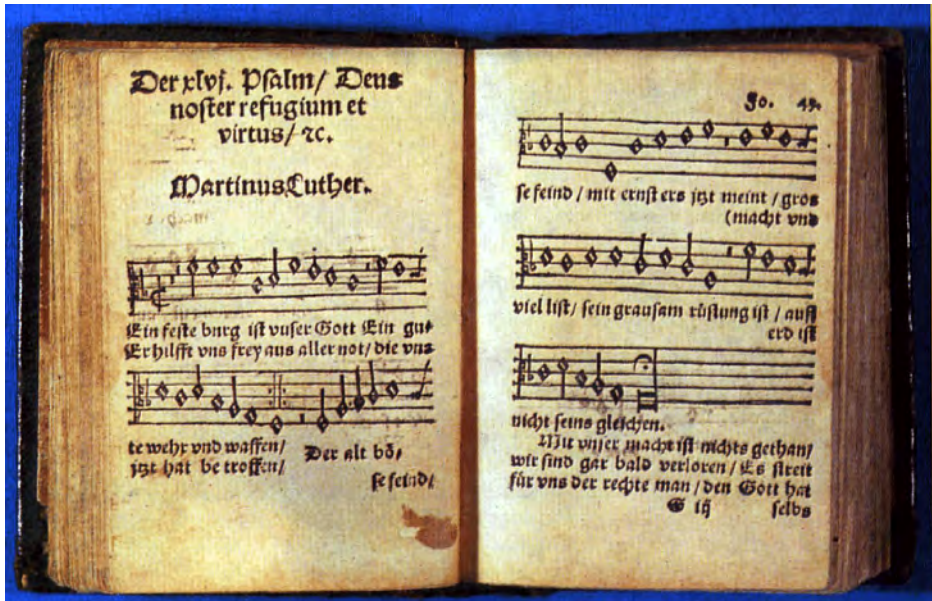 Der xlvj. Psalm/ Deus
noster refugium et
virtus/ ꝛc.
Martinus Luther.
Ein feste burg ist vnser Gott Ein gu⸗
Er hilfft vns frey aus aller not/ die vns
te wehr vnd waffen/ Der alt bö⸗
jtzt hat be troffen/
se feind/
Jo. 43.
se feind / mit ernst ers jtzt meint / gros
(macht vnd
viel list/ sein grausam rüstung ist / auff
erd ist
nicht seins gleichen.
Mit vnser macht ist nichts gethan/
wir sind gar bald verloren / Es streit
für vns der rechte man / den Gott hat
G iij selbs